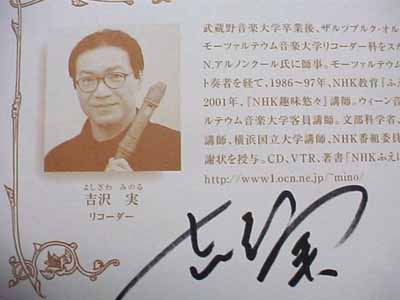 武蔵野音楽大学卒業後、ザルツブルク・オル
モーツァルテウム音楽大学リコーダー科をス
N.アルノンクール氏に師事。モーツァルテウム
ト奏者を経て、1986〜97年、NHK教育『ふえ
2001年、『NHK趣味悠々』講師。ウィーン音
ルテウム音楽大学客員講師。文部科学省、
講師、横浜国立大学講師、NHK番組委員
謝状を授与。CD、VTR、著書「NHKふえに
http://www1.ocn.ne.jp/~mino/
よしざわ みのる
吉沢 実
リコーダー
吉沢実